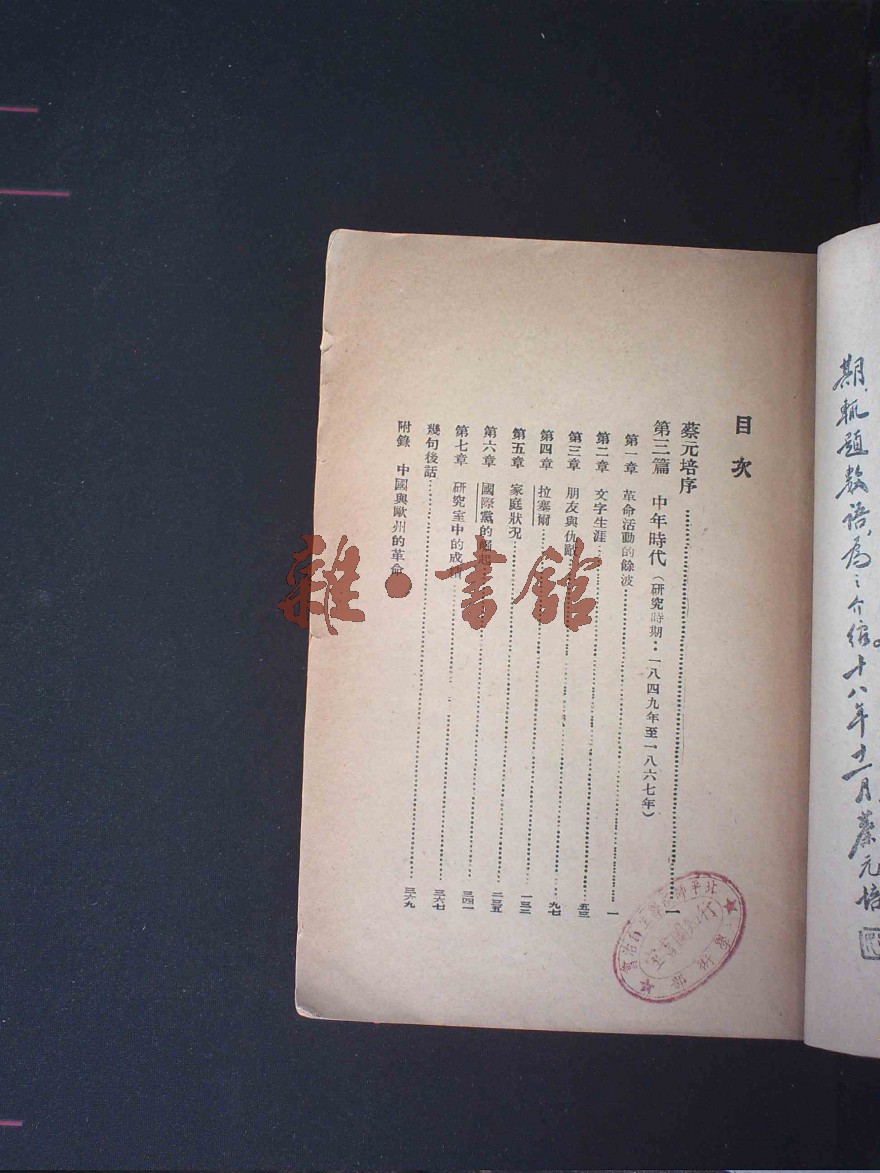 期，輒題數語，為之介紹。十八年十一月蔡元培
目次
蔡元培序……一
第三篇　中年時代（研究時期：一八四九年至一八六七年）
第一章　革命活動的餘波……一
第二章　文字生涯……五三
第三章　朋友與仇敵……九七
第四章　拉塞爾……一三二
第五章　家庭狀況……二三五
第六章　國際黨的
第七章　研究室中的成績
幾句後話……三六七
附錄　中國與歐州的革命……三六九
三四一
雜·書館
學術部